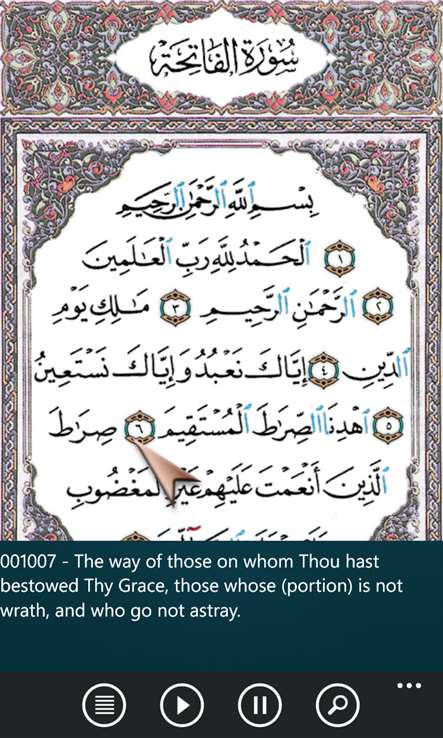 سُورَةُ الفَاتِحَة
بِسْمِ ٱللَّهِ ٱلرَّحْمَٰنِ ٱلرَّحِيمِ
١ ٱلْحَمْدُ لِلَّهِ رَبِّ ٱلْعَـٰلَمِينَ
٢ ٱلرَّحْمَـٰنِ ٱلرَّحِيمِ ٣ مَـٰلِكِ يَوْمِ
ٱلدِّينِ ٤ إِيَّاكَ نَعْبُدُ وَإِيَّاكَ نَسْتَعِينُ
٥ ٱهْدِنَا ٱلصِّرَٰطَ ٱلْمُسْتَقِيمَ ٦ صِرَٰطَ
ٱلَّذِينَ أَنْعَمْتَ عَلَيْهِمْ غَيْرِ ٱلْمَغْضُوبِ
001007 - The way of those on whom Thou hast
bestowed Thy Grace, those whose (portion) is not
wrath, and who go not astray.